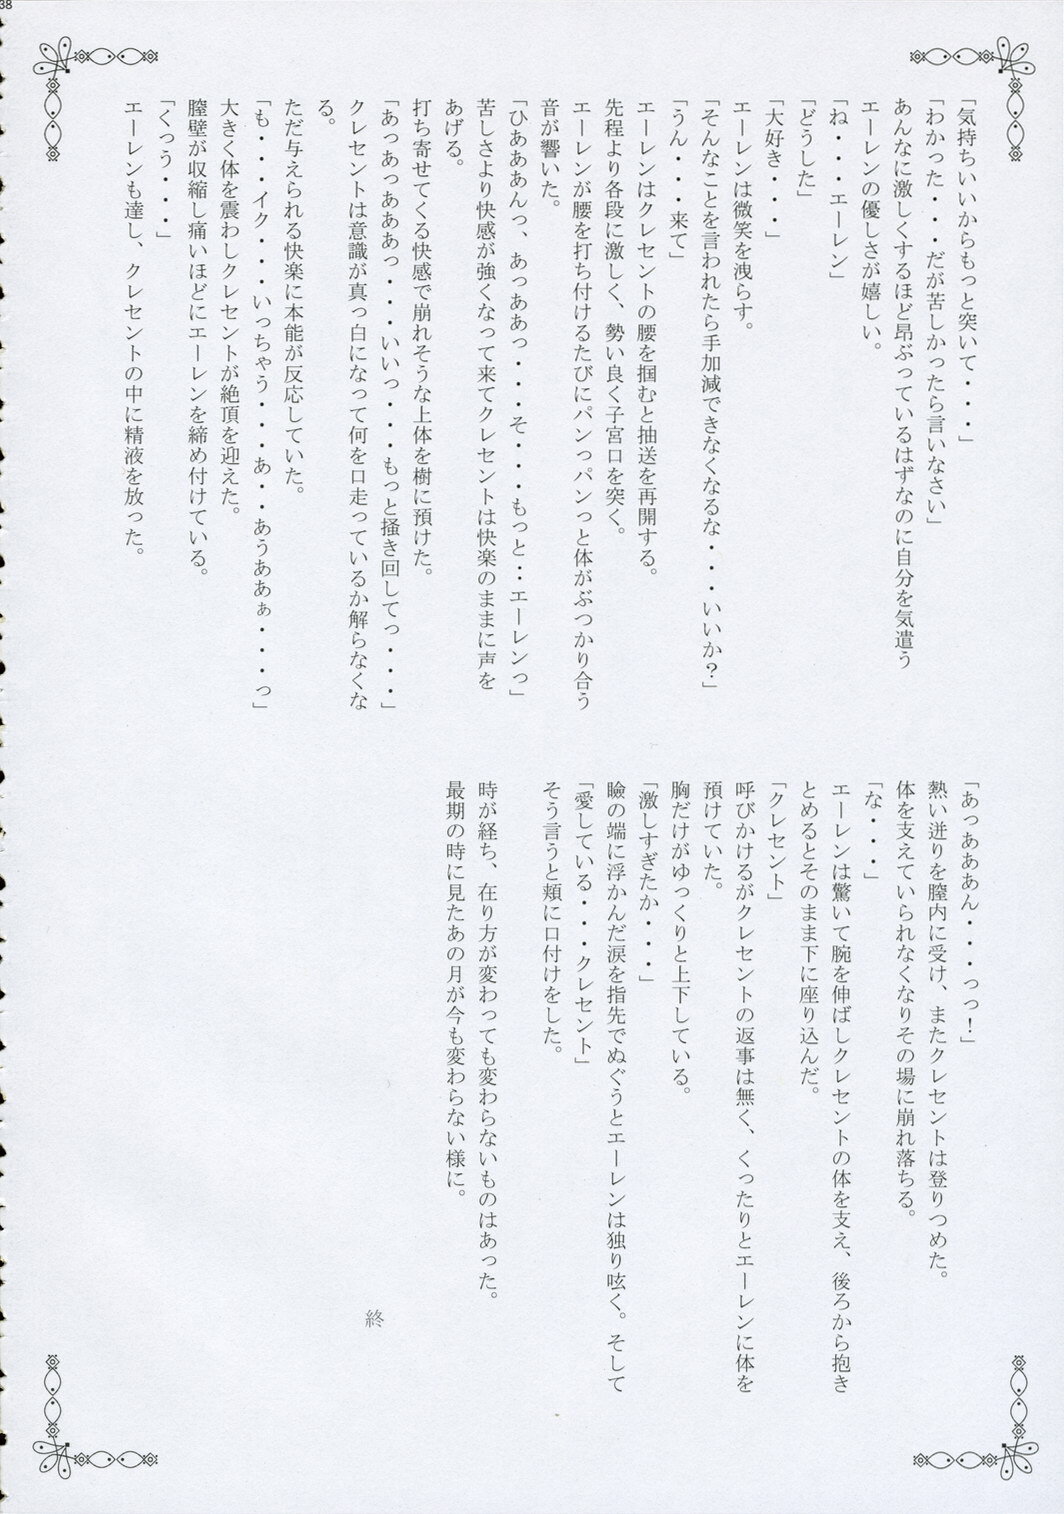 38
「気持ちいいからもっと突いて・・・」
「わかった・・・だが苦しかったら言いなさい」
あんなに激しくするほど昂ぶっているはずなのに自分を気遣う
エーレンの優しさが嬉しい。
「ね・・・エーレン」
「どうした」
「大好き・・・」
エーレンは微笑を洩らす。
「そんなことを言われたら手加減できなくなるな・・・いいか？」
「うん・・・来て」
エーレンはクレセントの腰を掴むと抽送を再開する。
先程より各段に激しく、勢い良く子宮口を突く。
エーレンが腰を打ち付けるたびにパンっパンっと体がぶつかり合う
音が響いた。
「ひああぁんっ、あっああっ・・・そ・・・もっと・・エーレンっ」
苦しさより快感が強くなって来てクレセントは快楽のままに声を
あげる。
打ち寄せてくる快感で崩れそうな上体を樹に預けた。
「あっあっあああっ・・・いいっ・・・もっと掻き回してっ・・・」
クレセントは意識が真っ白になって何を口走っているか解らなくな
る。
ただ与えられる快楽に本能が反応していた。
「も・・・イク・・・いっちゃう・・・あ・・あうああぁ・・・っ」
大きく体を震わしクレセントが絶頂を迎えた。
膣壁が収縮し痛いほどにエーレンを締め付けている。
「くっう・・・」
エーレンも達し、クレセントの中に精液を放った。
「あっあああん・・・っっ！」
熱い迸りを膣内に受け、またクレセントは登りつめた。
体を支えていられなくなりその場に崩れ落ちる。
「な・・・」
エーレンは驚いて腕を伸ばしクレセントの体を支え、後ろから抱き
とめるとそのまま下に座り込んだ。
「クレセント」
呼びかけるがクレセントの返事は無く、くったりとエーレンに体を
預けていた。
胸だけがゆっくりと上下している。
「激しすぎたか・・・」
瞼の端に浮かんだ涙を指先でぬぐうとエーレンは独り呟く。そして
「愛している・・・クレセント」
そう言うと頬に口付けをした。
時が経ち、在り方が変わっても変わらないものはあった。
最期の時に見たあの月が今も変わらない様に。
終